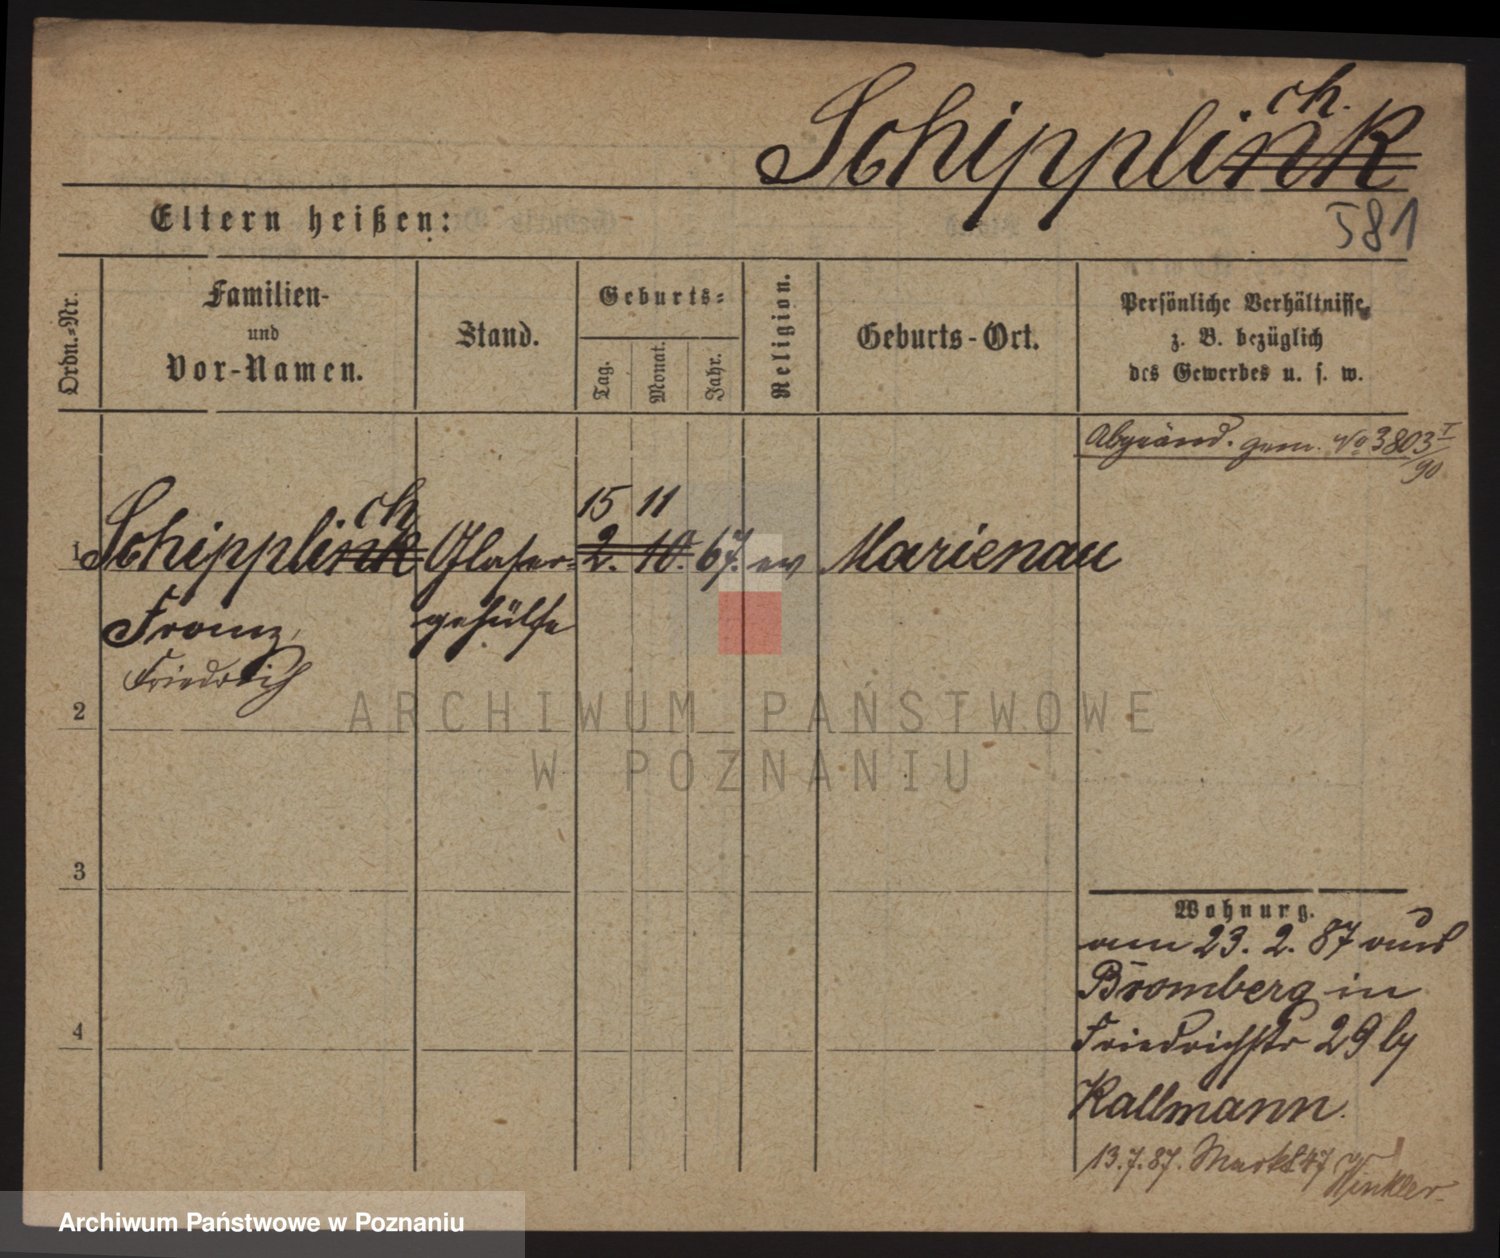 Schipplink ch.
581
Eltern heißen:
Ordn.-Nr.
Familien-
und
Vor-Namen.
Stand.
Geburts-
Tag.
Monat.
Jahr.
Religion.
Geburts-Ort.
Persönliche Verhältnisse,
z. B. bezüglich
des Gewerbes u. s. w.
Abgeänd. gem. No 3803 I/90
15 11
1 Schipplink ch Glaser- 2. 10. 67. ev Marienau
Franz, gehülfe
Friedrich
2
3
4
Wohnung.
am 23. 2. 87 aus
Bromberg in
Friedrichstr 29 by
Kallmann.
13.7.87. Markt 47 Winkler.
ARCHIWUM PAŃSTWOWE
W POZNANIU
Archiwum Państwowe w Poznaniu